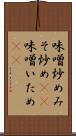 味噌炒めみ
そ炒め
味噌いため